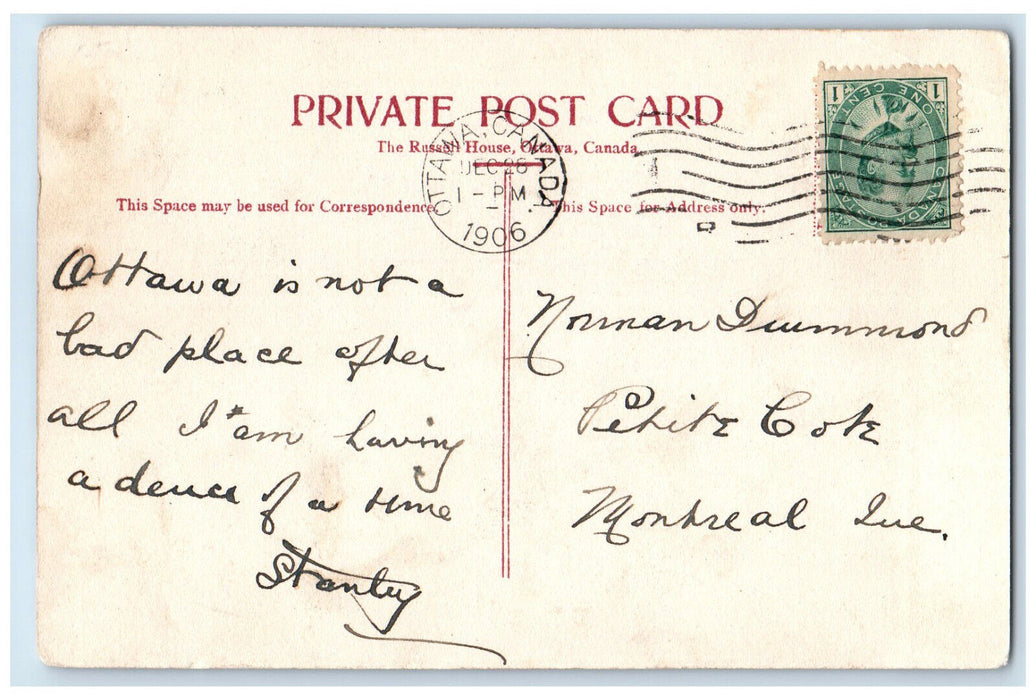 PRIVATE POST CARD
The Russell House, Ottawa, Canada.
OTTAWA, CANADA
DEC 28
1 - PM
1906
This Space may be used for Correspondence.
This Space for Address only.
1 ONE CENT 1
CANADA POSTAGE
Ottawa is not a
bad place after
all I am having
a deuce of a time
Stanley
Norman Drummond
Petite Cote
Montreal Que.